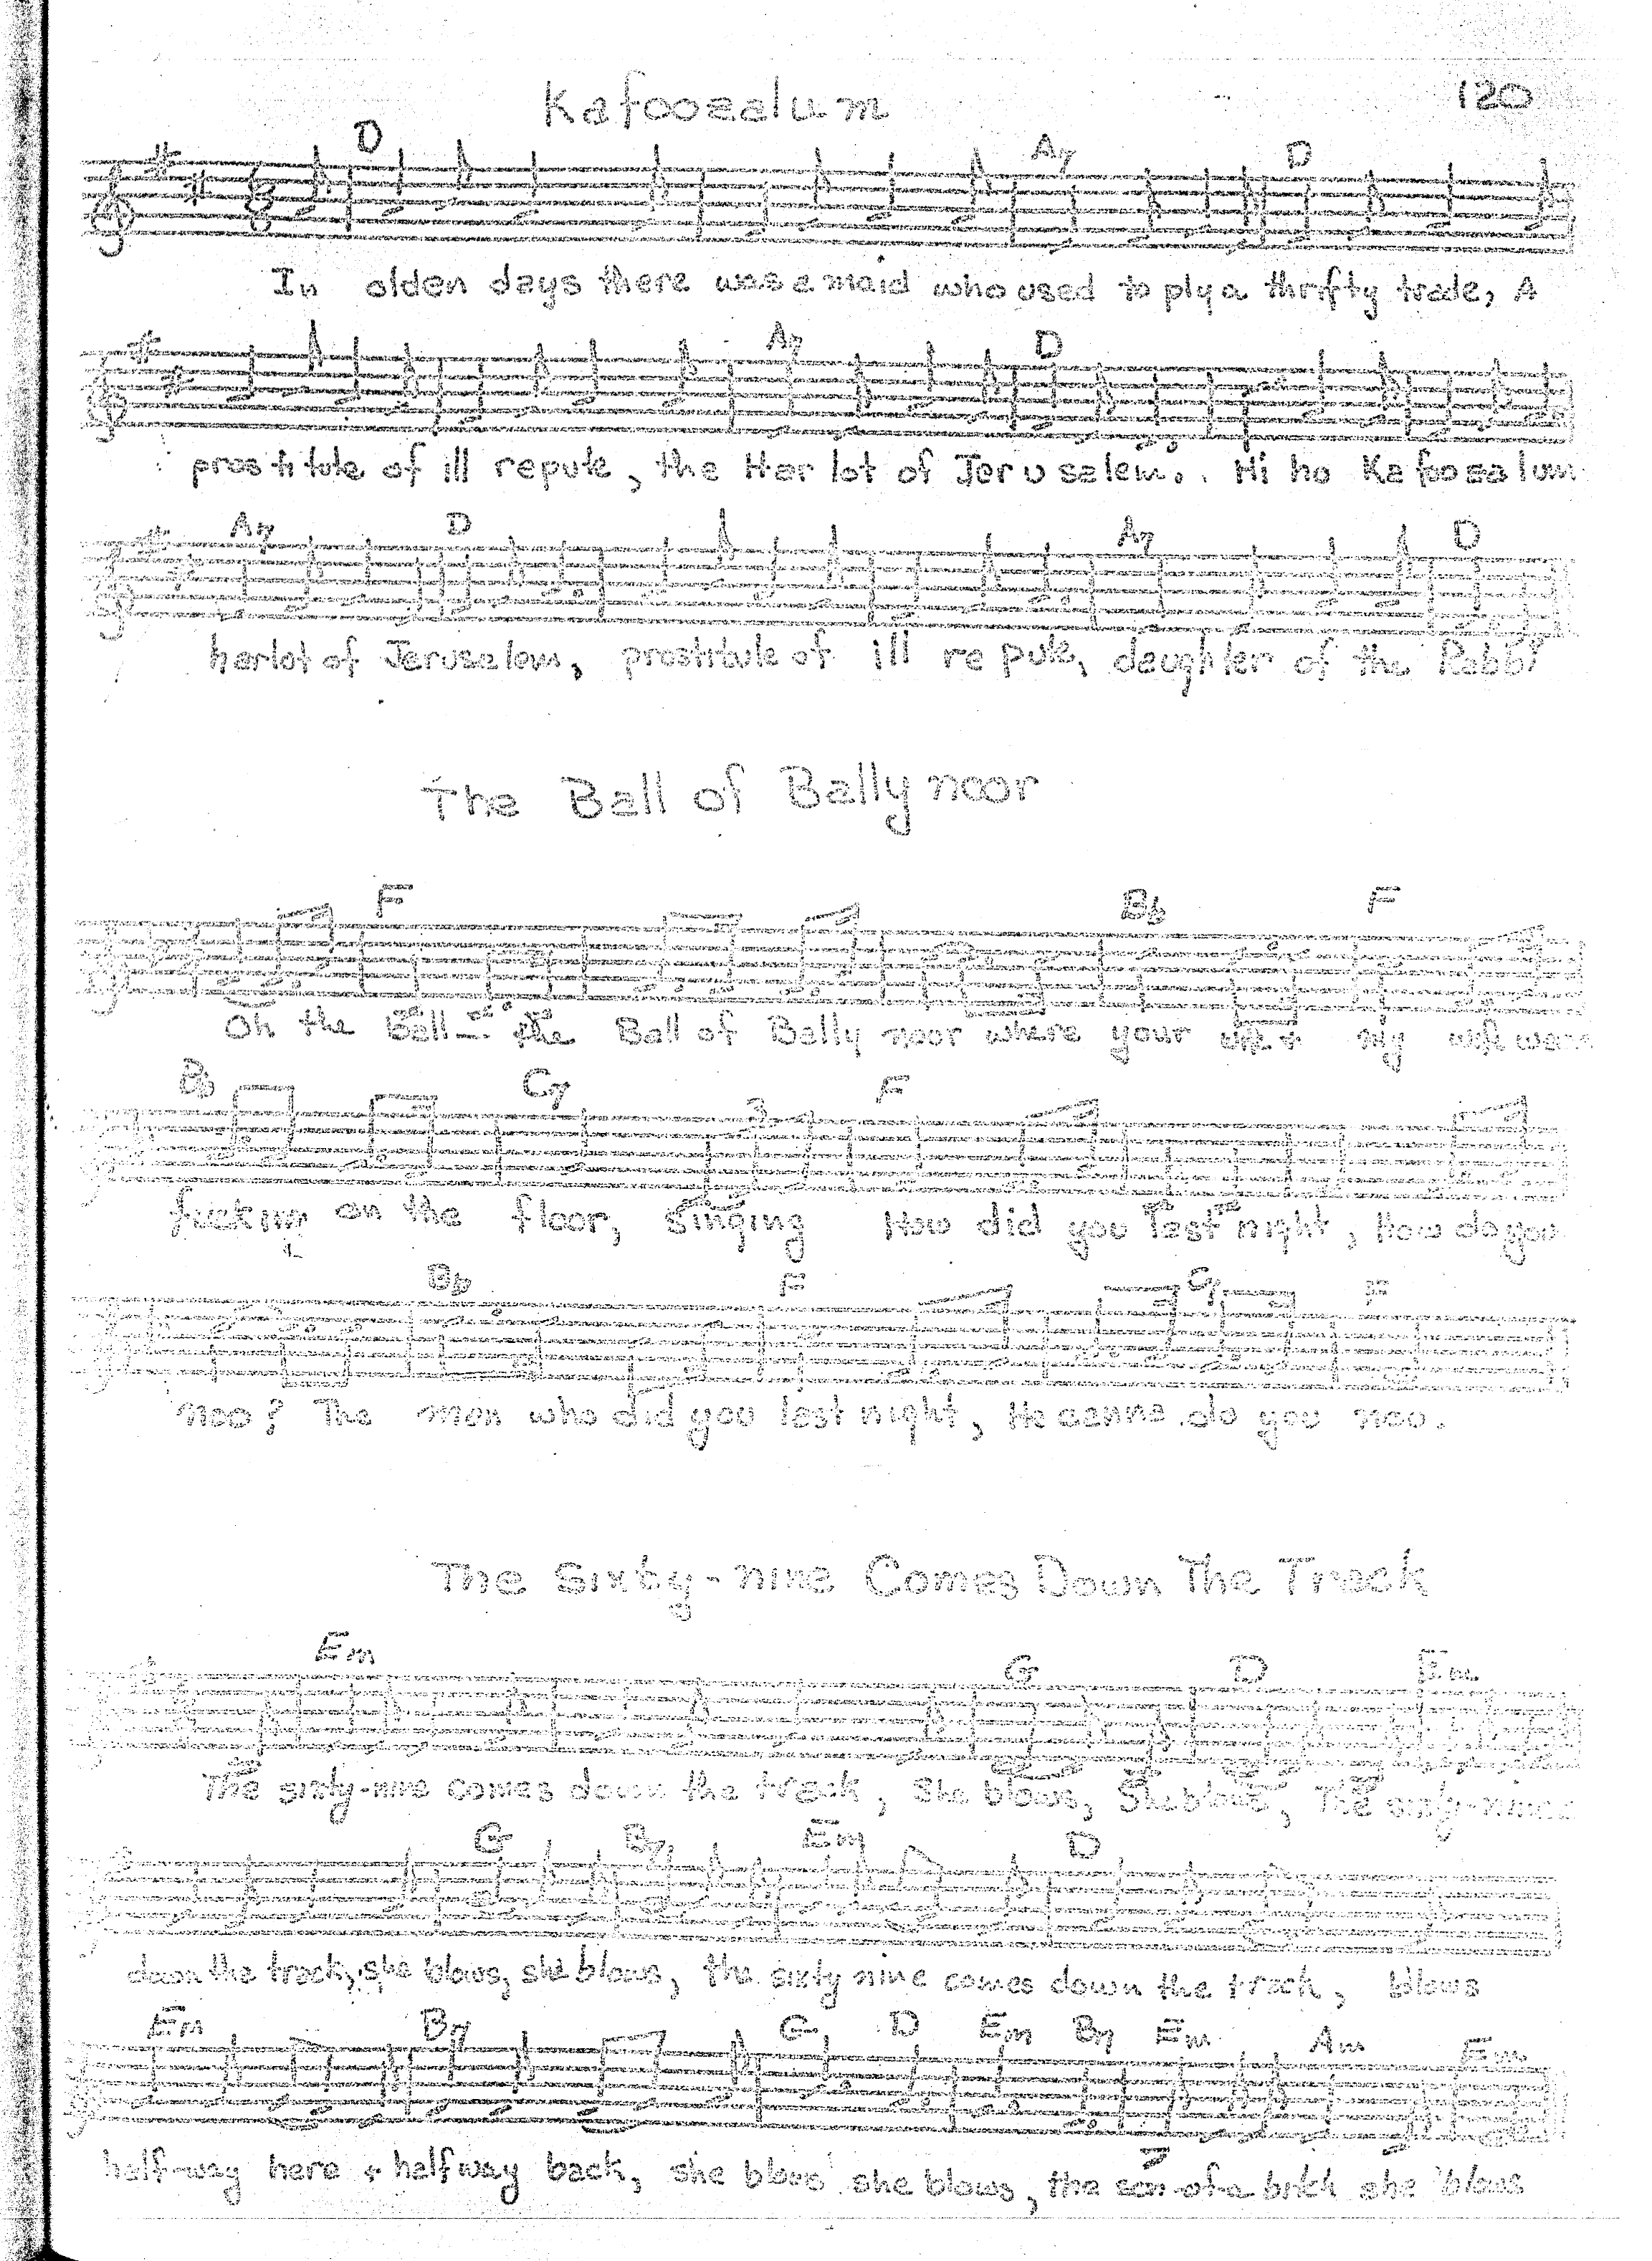 Kafoozalum 120
D A7 D
In olden days there was a maid who used to ply a thrifty trade, A
A7 D
prostitute of ill repute, the Harlot of Jerusalem. Hi ho Kafoozalum
A7 D A7 D
harlot of Jerusalem, prostitute of ill repute, daughter of the Rabbi
The Ball of Ballynoor
F Bb F
Oh the Ball the Ball of Ballynoor where your wife & my wife were
Bb C7 F
fucking on the floor, singing How did you last night, how do you
Bb F C7 F
noo? The man who did you last night, He canna do you noo.
The Sixty-nine Comes Down The Track
Em G D Em
The sixty-nine comes down the track, She blows, She blows, The sixty-nine
G B7 Em D
down the track, she blows, she blows, the sixty nine comes down the track, blows
Em B7 G D Em B7 Em Am Em
half-way here & halfway back, she blows she blows, the son-of-a bitch she blows